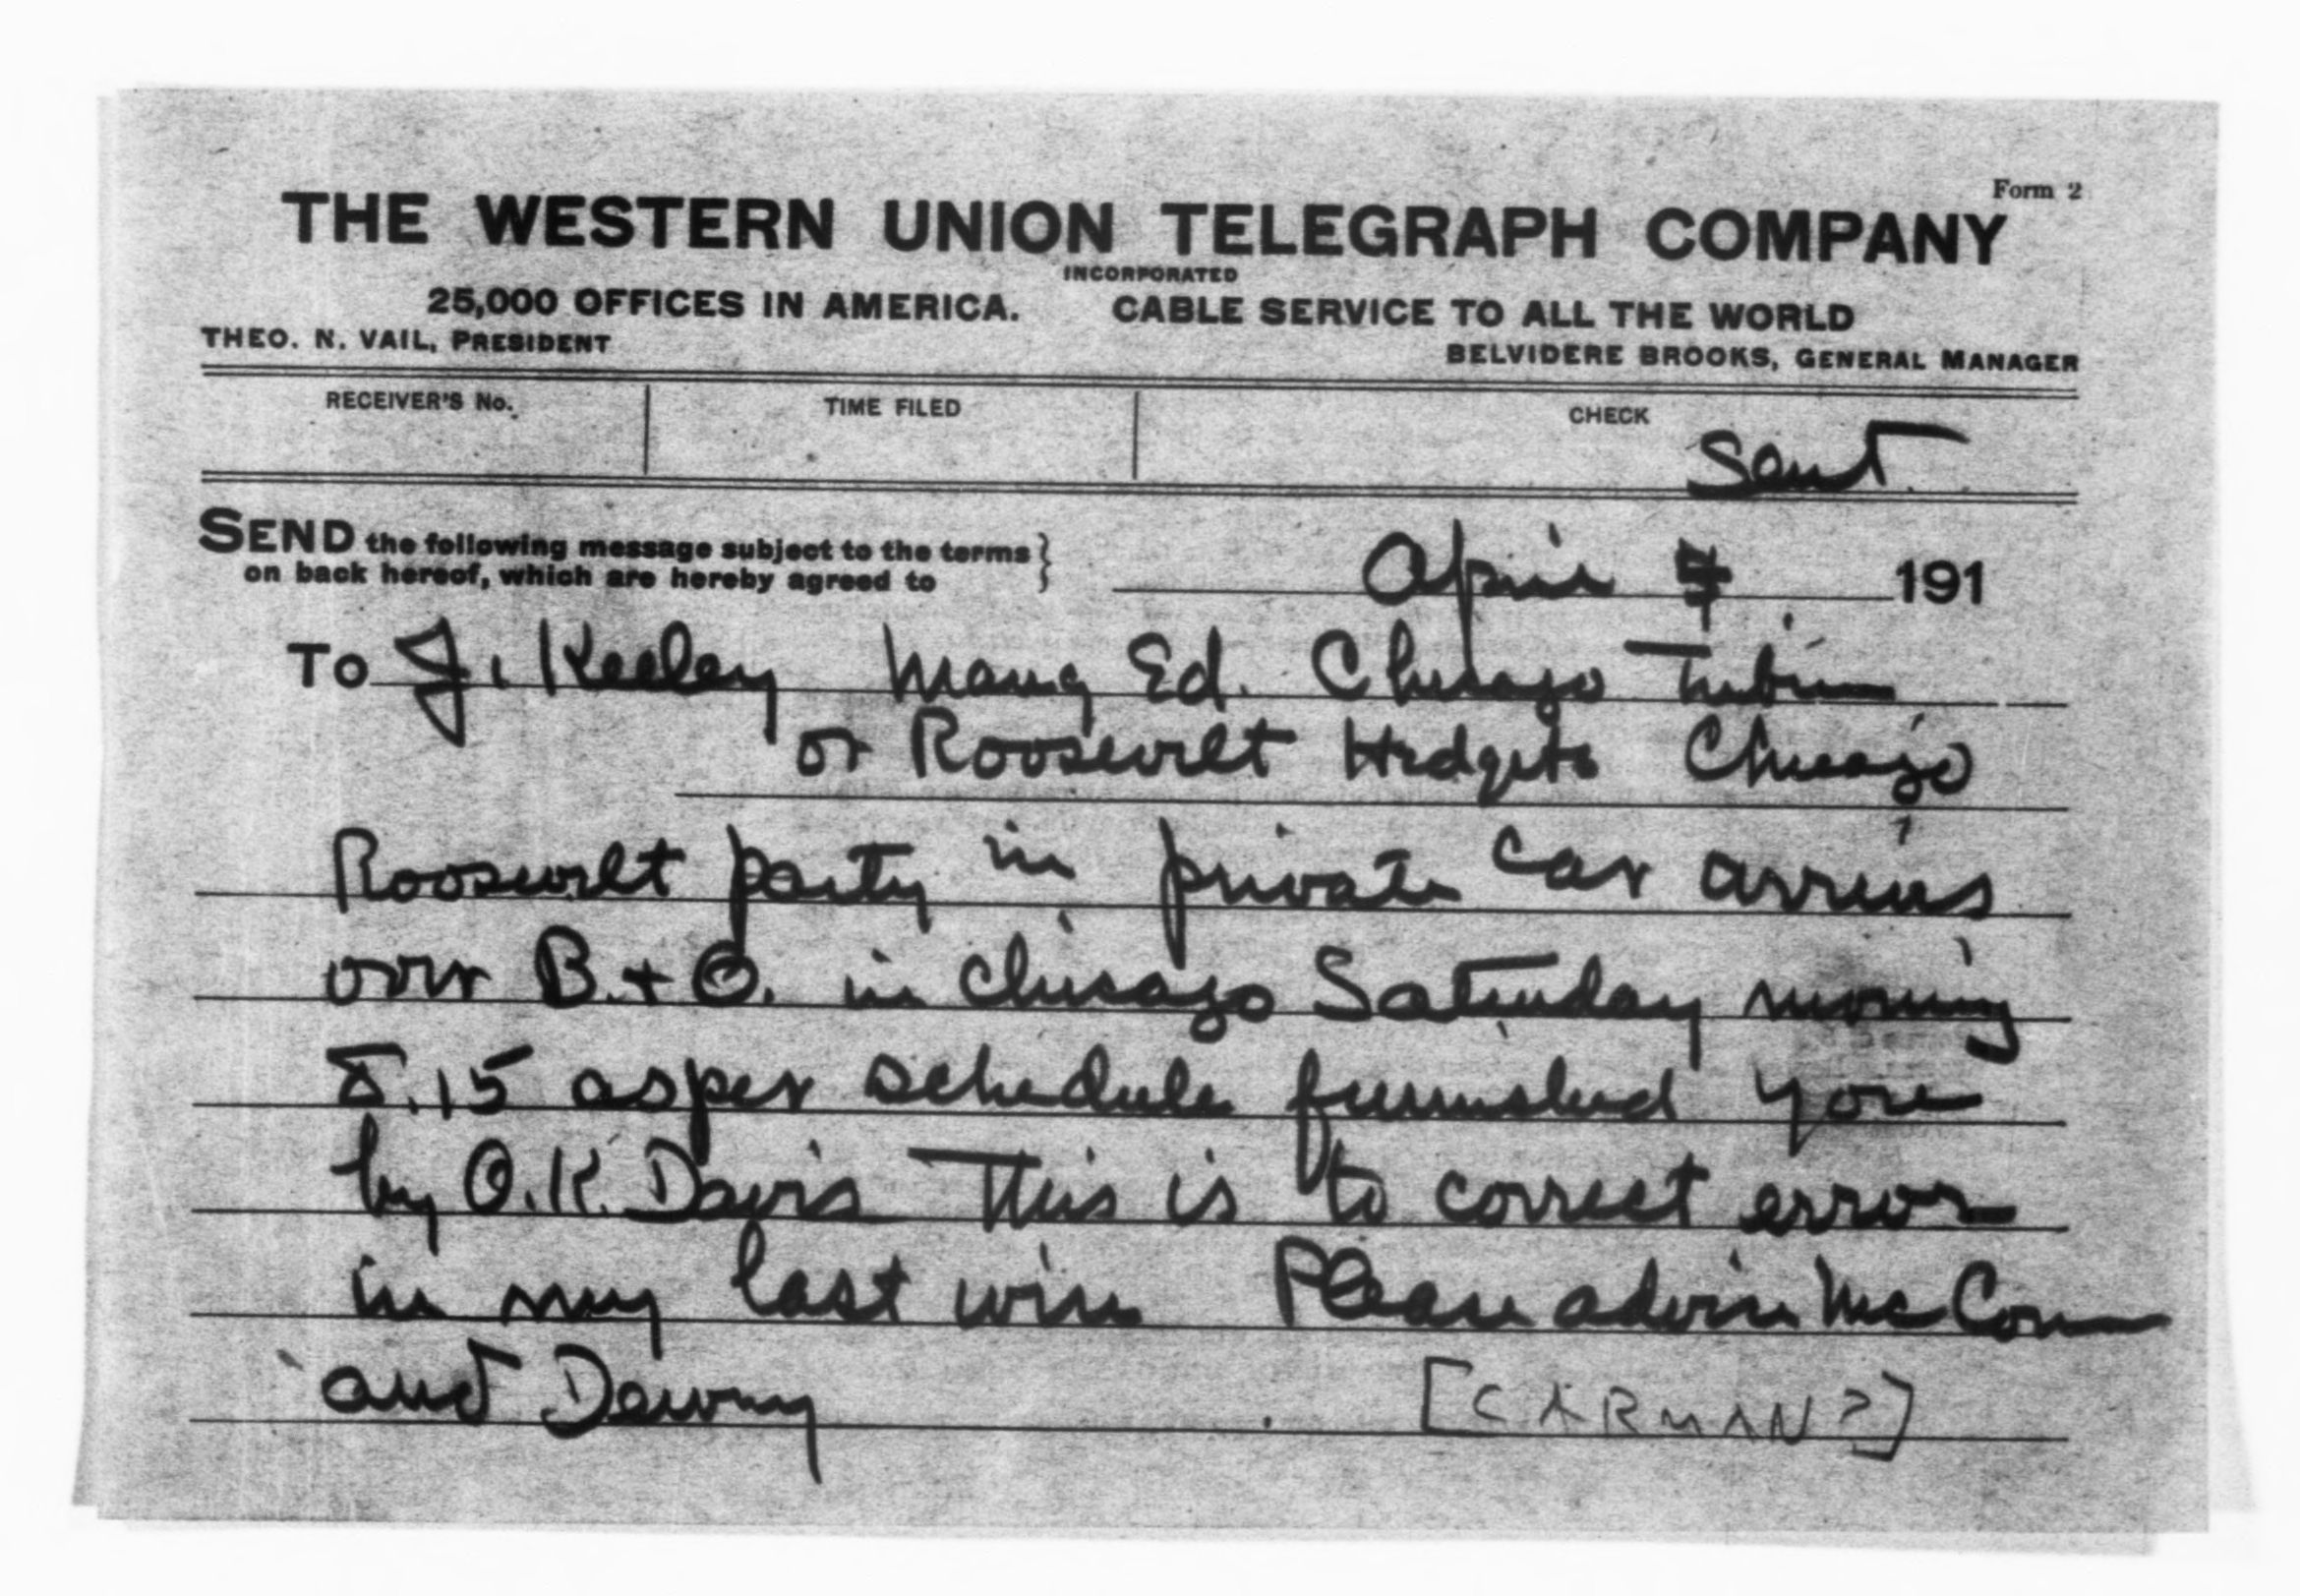 Form 2
THE WESTERN UNION TELEGRAPH COMPANY
INCORPORATED
25,000 OFFICES IN AMERICA. CABLE SERVICE TO ALL THE WORLD
THEO. N. VAIL, PRESIDENT BELVIDERE BROOKS, GENERAL MANAGER
RECEIVER'S No. TIME FILED CHECK
Sent
SEND the following message subject to the terms
on back hereof, which are hereby agreed to
April 191
To J. Keeley Mang Ed. Chicago Tribune
or Roosevelt Hdqts Chicago
Roosevelt party in private car arrives
over B. + O. in Chicago Saturday morning
8.15 as per schedule furnished you
by O.K. Davis This is to correct error
in my last wire Please advise McCor
and Dewey
[CARMAN?]